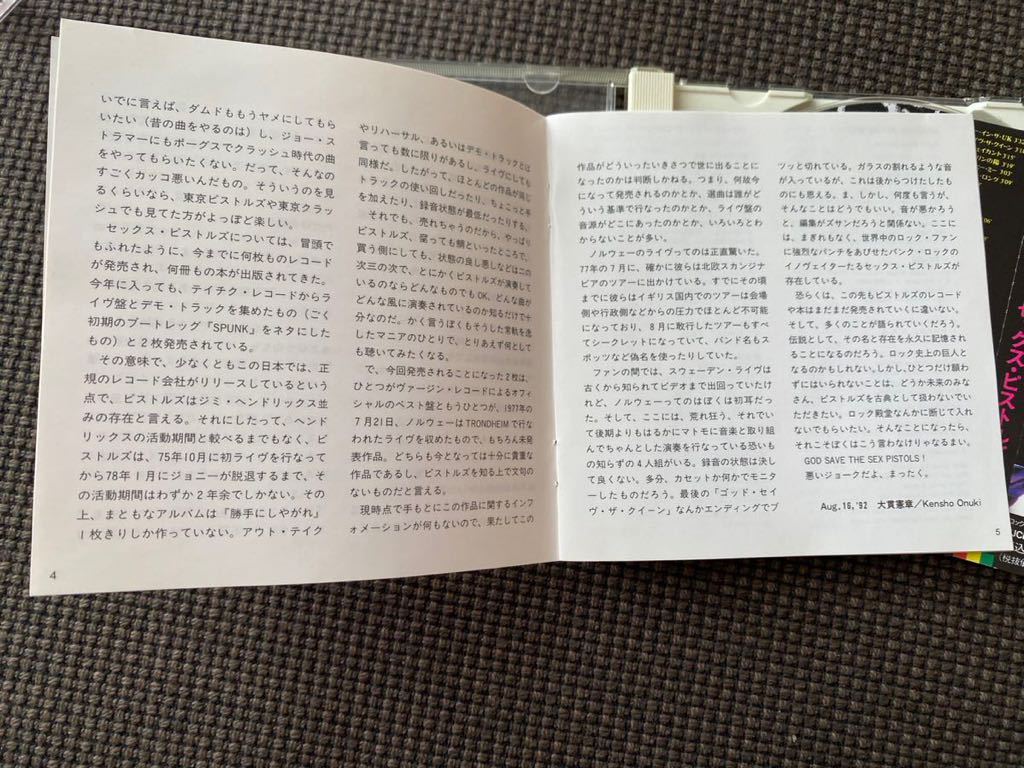 いでに言えば、ダムドももうヤメにしてもら
いたい(昔の曲をやるのは)し、ジョー・ス
トラマーにもポーグスでクラッシュ時代の曲
をやってもらいたくない。だって、そんなの
すごくカッコ悪いんだもの。そういうのを見
るくらいなら、東京ピストルズや東京クラッ
シュでも見てた方がよっぽど楽しい。
セックス・ピストルズについては、冒頭で
もふれたように、今までに何枚ものレコード
が発売され、何冊もの本が出版されてきた。
今年に入っても、テイチク・レコードからラ
イヴ盤とデモ・トラックを集めたもの(ごく
初期のブートレッグ「SPUNK」をネタにした
もの)と2枚発売されている。
その意味で、少なくともこの日本では、正
規のレコード会社がリリースしているという
点で、ピストルズはジミ・ヘンドリックス並
みの存在と言える。それにしたって、ヘンド
リックスの活動期間と較べるまでもなく、ピ
ストルズは、75年10月に初ライヴを行なって
から78年1月にジョニーが脱退するまで、そ
の活動期間はわずか2年余でしかない。その
上、まともなアルバムは「勝手にしやがれ」
1枚きりしか作っていない。アウト・テイク
4
やリハーサル、あるいはデモ・トラックとは
言っても数に限りがあるし、ライヴにしても
同様だ。したがって、ほとんどの作品が同じ
トラックの使い回しだったり、ちょこっと手
を加えたり、録音状態が最低だったりする。
それでも、売れちゃうのだから、やっぱり
ピストルズ、腐っても鯛といったところで、
買う側にしても、状態の良し悪しなどはこの
次三の次で、とにかくピストルズが演奏して
いるのならどんなものでもOK、どんな曲が
どんな風に演奏されているのか知るだけで十
分なのだ。かく言うぼくもそうした常軌を逸
したマニアのひとりで、とりあえず何として
も聴いてみたくなる。
で、今回発売されることになった2枚は、
ひとつがヴァージン・レコードによるオフィ
シャルのベスト盤ともうひとつが、1977年の
7月21日、ノルウェーはTRONDHEIMで行な
われたライヴを収めたもので、もちろん未発
表作品。どちらも今となっては十分に貴重な
作品であるし、ピストルズを知る上で文句の
ないものだと言える。
現時点で手もとにこの作品に関するインフ
ォメーションが何もないので、果たしてこの
作品がどういったいきさつで世に出ることに
なったのかは判断しかねる。つまり、何故今
になって発売されるのかとか、選曲は誰がど
ういう基準で行なったのかとか、ライヴ盤の
音源がどこにあったのかとか、いろいろとわ
からないことが多い。
ノルウェーのライヴってのは正直驚いた。
77年の7月に、確かに彼らは北欧スカンジナ
ビアのツアーに出かけている。すでにその頃
までに彼らはイギリス国内でのツアーは会場
側や行政側などからの圧力でほとんど不可能
になっており、8月に敢行したツアーもすべ
てシークレットになっていて、バンド名もス
ポッツなど偽名を使ったりしていた。
ファンの間では、スウェーデン・ライヴは
古くから知られてビデオまで出回っていたけ
れど、ノルウェーってのはぼくは初耳だっ
た。そして、ここには、荒れ狂う、それでい
て後期よりもはるかにマトモに音楽と取り組
んでちゃんとした演奏を行なっている恐いも
の知らずの4人組がいる。録音の状態は決し
て良くない。多分、カセットか何かでモニタ
ーしたものだろう。最後の「ゴッド・セイ
ヴ・ザ・クイーン」なんかエンディングでブ
ツッと切れている。ガラスの割れるような音
が入っているが、これは後からつけたしたも
のにも思える。ま、しかし、何度も言うが、
そんなことはどうでもいい。音が悪かろう
と、編集がズサンだろうと関係ない。ここに
は、まぎれもなく、世界中のロック・ファン
に強烈なパンチをあびせたパンク・ロックの
イノヴェイターたるセックス・ピストルズが
存在している。
恐らくは、この先もピストルズのレコード
や本はまだまだ発売されていくに違いない。
そして、多くのことが語られていくだろう。
伝説として、その名と存在を永久に記憶され
ることになるのだろう。ロック史上の巨人と
なるのかもしれない。しかし、ひとつだけ願わ
ずにはいられないことは、どうか未来のみな
さん、ピストルズを古典として扱わないでい
ただきたい。ロック殿堂なんかに断じて入れ
ないでもらいたい。そんなことになったら、
それこそぼくはこう言わなけりゃなるまい。
GOD SAVE THE SEX PISTOLS!
悪いジョークだよ、まったく。
Aug.16,'92 大貫憲章/Kensho Onuki
5